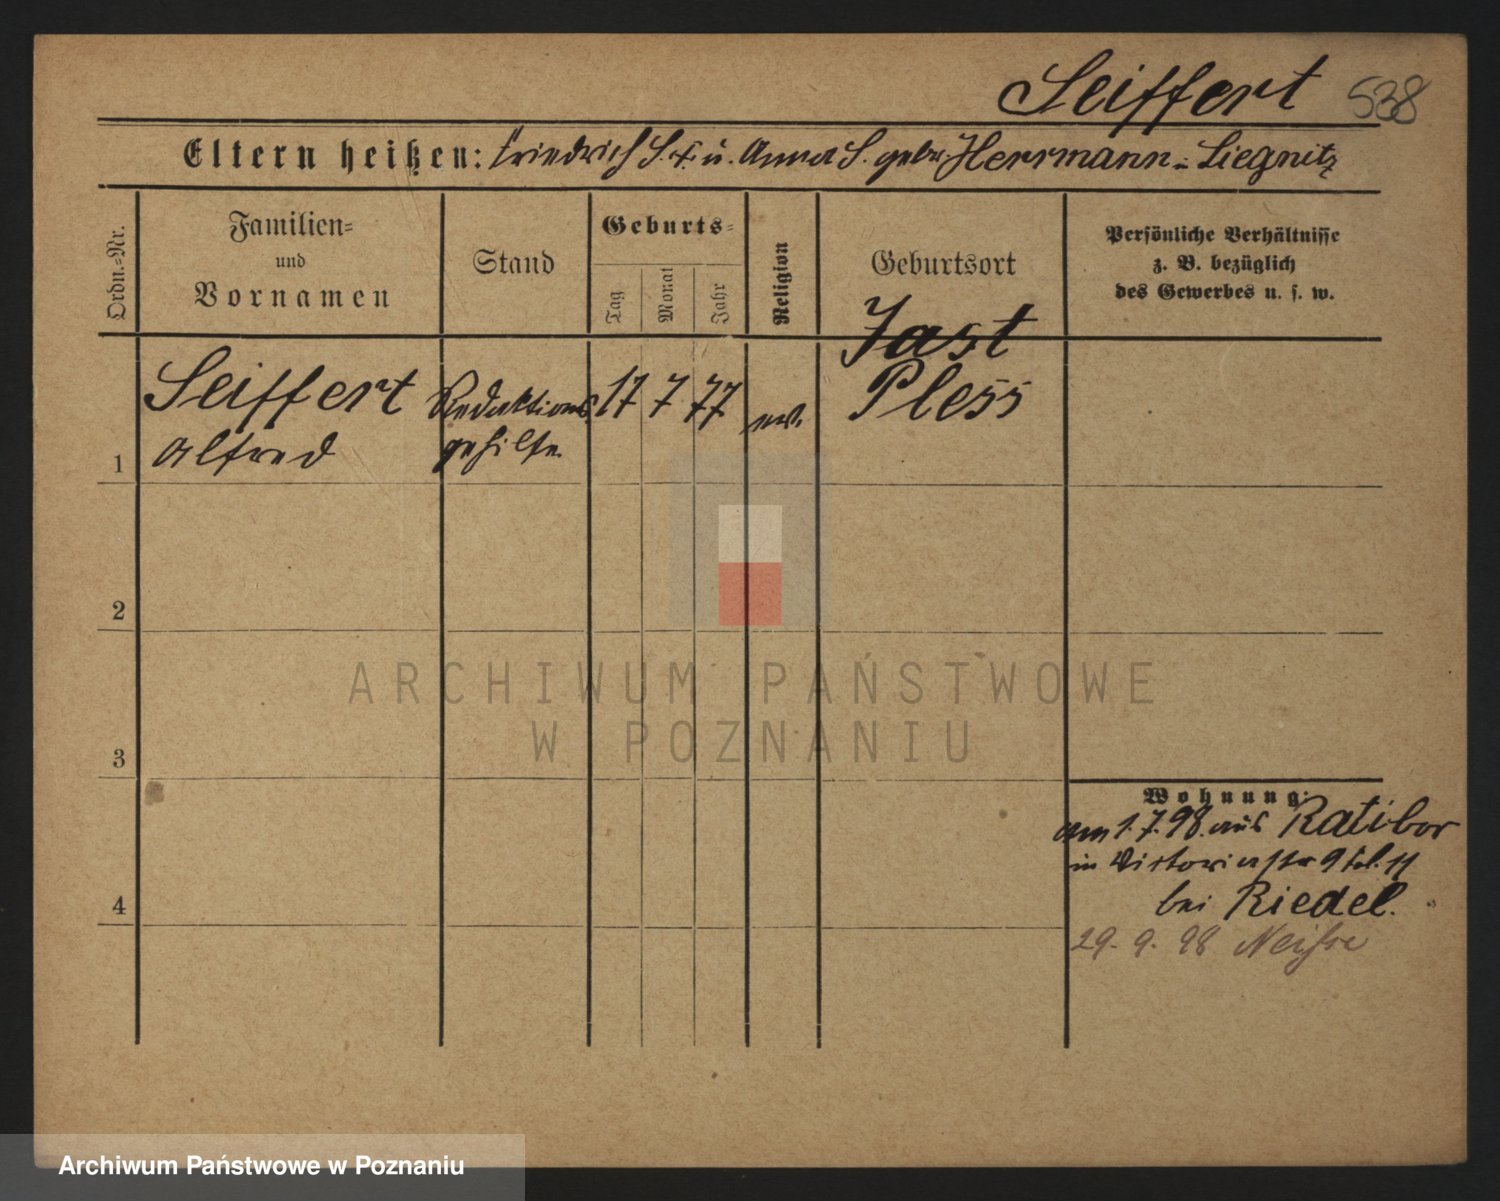 Seiffert 538
Eltern heißen: Friedrich S. † u. Anna S. geb. Herrmann - Liegnitz
Ordn.-Nr.
Familien-
und
Vornamen
Stand
Geburts-
Tag
Monat
Jahr
Religion
Geburtsort
Persönliche Verhältnisse
z. B. bezüglich
des Gewerbes u. s. w.
Jast
Seiffert Redaktions 17 7 77 ev. Pless
1 Alfred gehilfe
2
3
4
ARCHIWUM PAŃSTWOWE
W POZNANIU
Wohnung:
am 1.7.98. aus Ratibor
in Victoriastr 9 II
bei Riedel.
29. 9. 98 Neisse
Archiwum Państwowe w Poznaniu